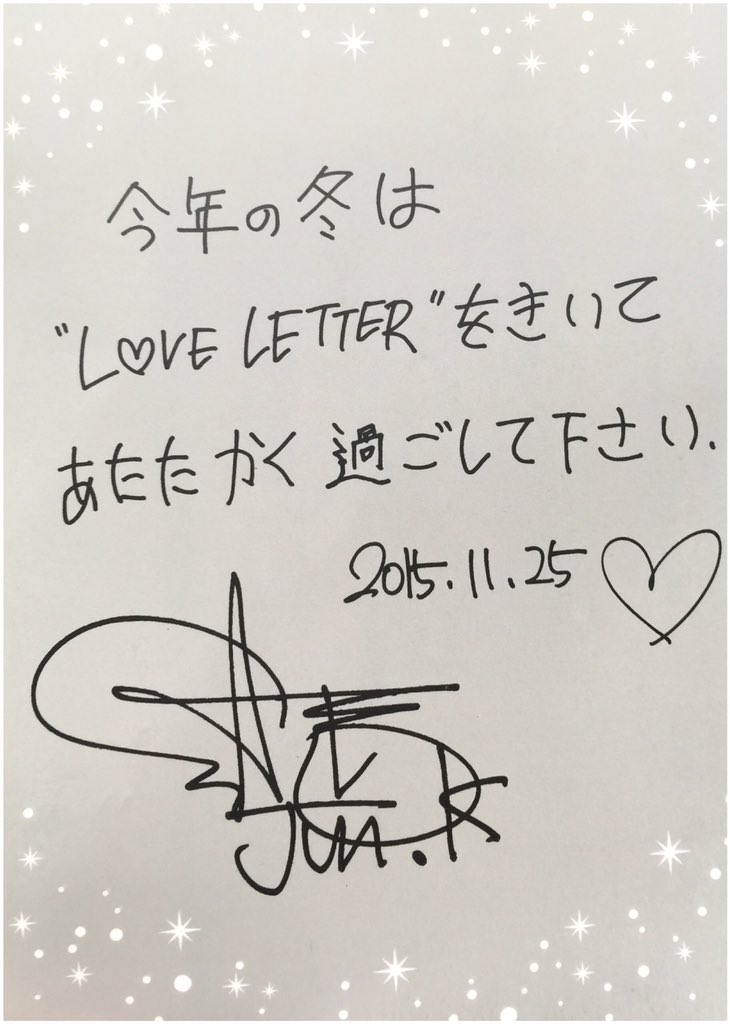 今年の冬は
"LOVE LETTER"をきいて
あたたかく過ごして下さい.
2015.11.25
Jun.K